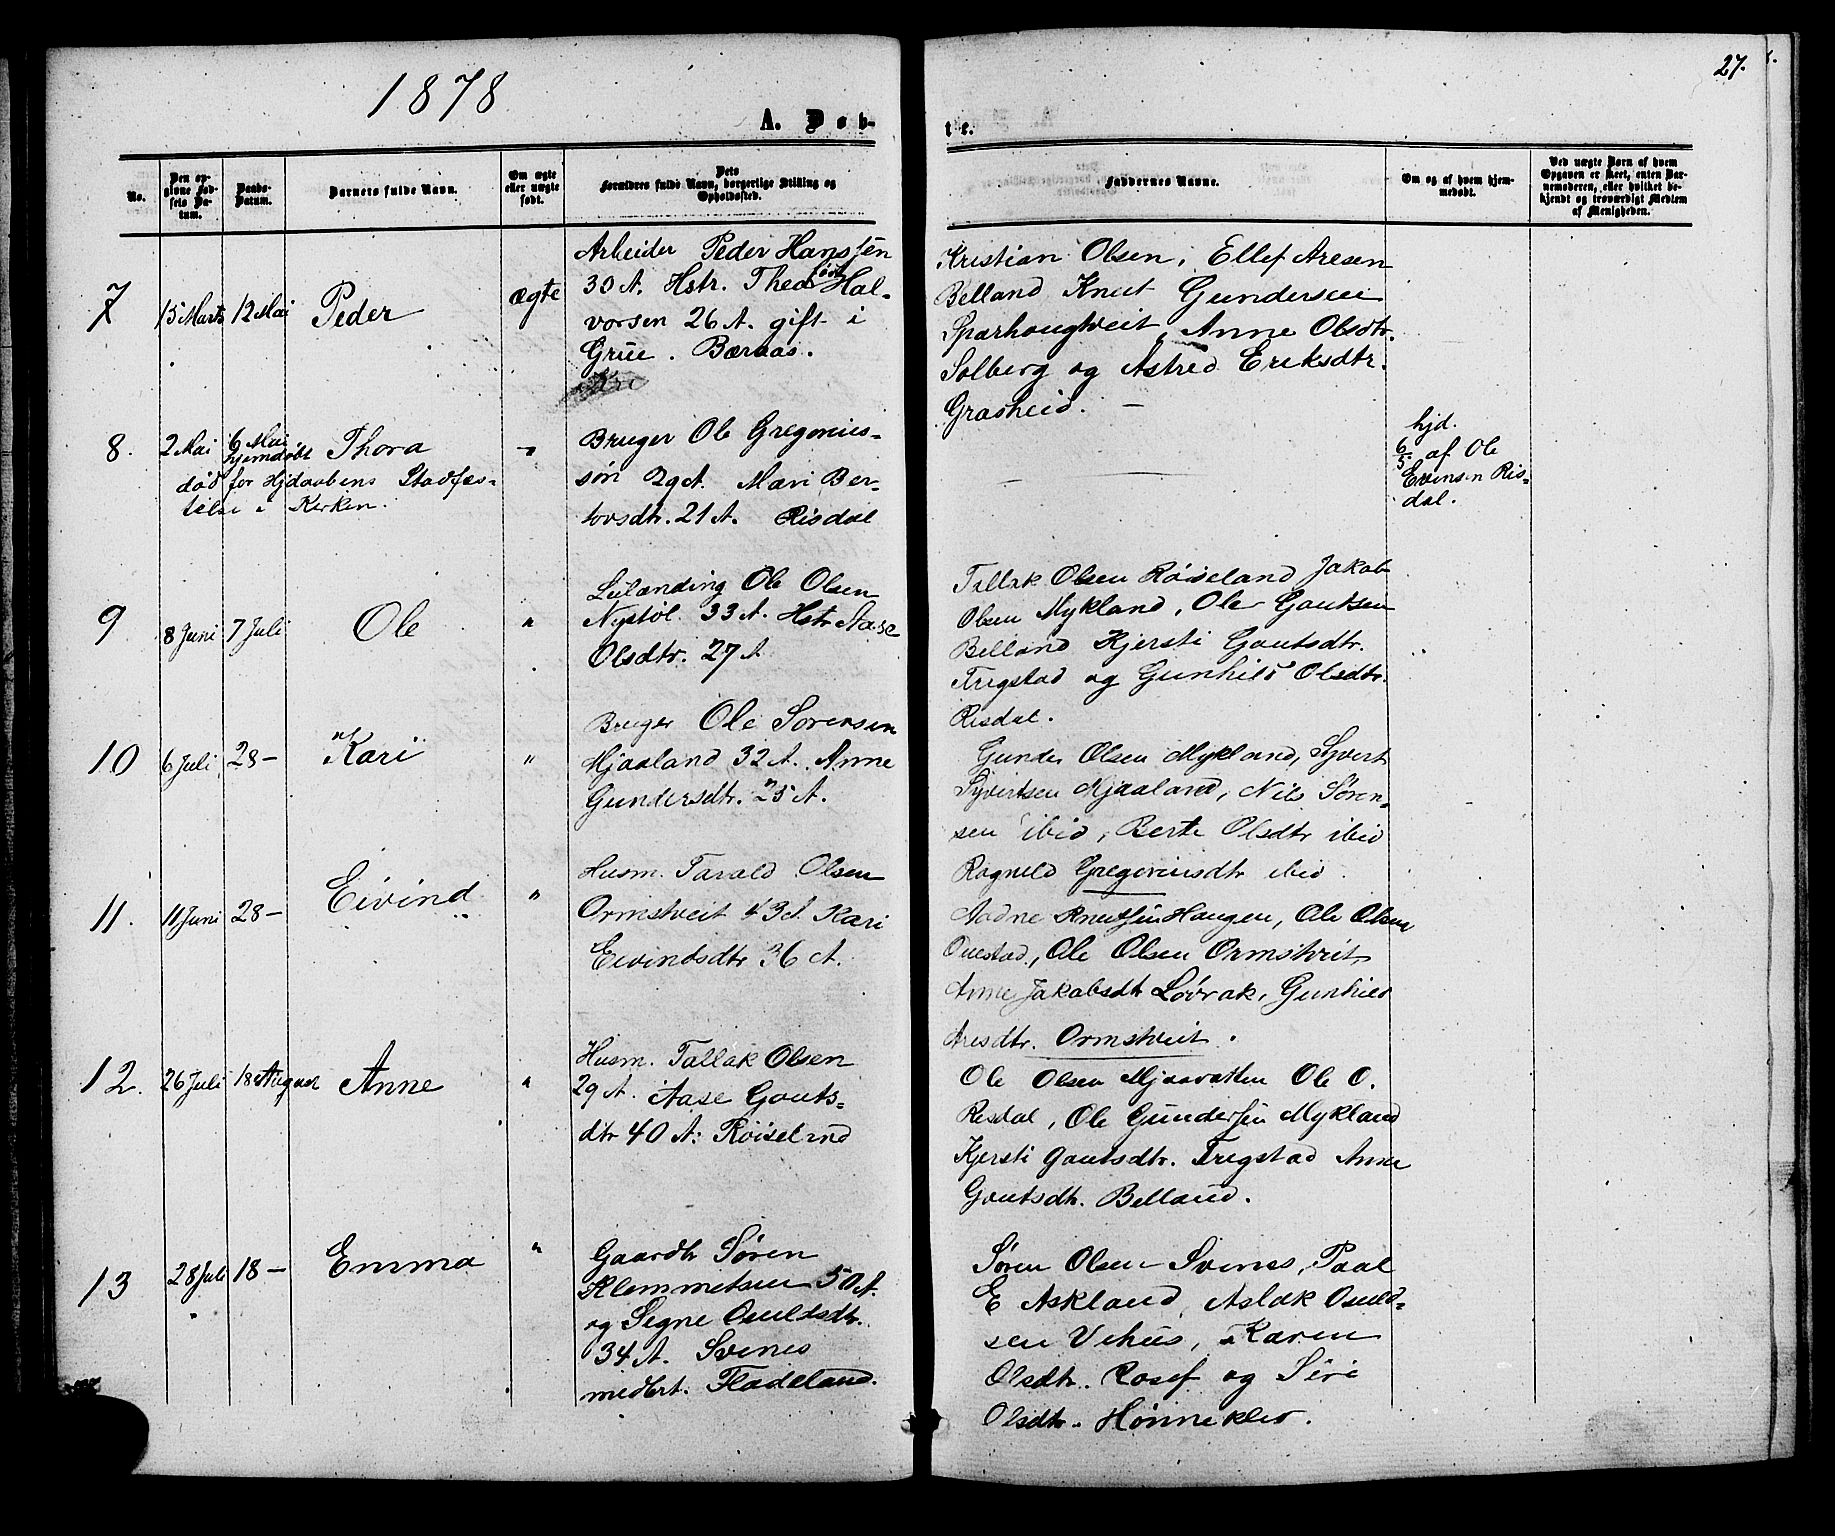 1878
27.
A. Døb-
te.
No.
Den op-
givne Fød-
sels Da-
tum.
Daabs-
Datum.
Barnets fulde Navn.
Om ægte
eller uægte
født.
Dets
Forældres fulde Navn, borgerlige Stilling og
Opholdssted.
Faddernes Navne.
Om og af hvem hjem-
medøbt.
Ved uægte Børn af hvem
Opgaven er skeet, enten Bar-
nemoderen, eller hvilket be-
kjendt og troværdigt Medlem
af Menigheden.
7
15 Marts
12 Mai
Peder
ægte
Arbeider Peder Hanssen
30 A. Hstr. Thea Hal-
vorsen 26 A. gift i
Grue. Bæraas.
Kristian Olsen, Ellef Aresen
Belland Knut Gundersen
Sparhougtveit, Anne Olsdtr.
Solberg og Astred Eriksdtr.
Grasheid. —
8.
2 Mai
6 Mai
hjemdøbt
Thora
død for Hjdaabens Stadfæs-
telse i Kirken.
Bruger Ole Gregorius-
søn 29 A. Mari Ber-
tovsdtr. 21 A. Risdal
hjd.
6/5 af Ole
Evensen Ris-
dal.
9
8 Juni
7 Juli
Ole
"
Leilænding Ole Olsen
Nystøl. 33 A. Hstr Aase
Olsdtr. 27 A
Tallak Olsen Røiseland Jakob
Olsen Mykland, Ole Goutsen
Belland Kjersti Goutsdtr.
Tregstad og Gunhild Olsdtr.
Risdal.
10
6 Juli
28 —
Kari
"
Bruger Ole Sørensen
Mjaaland 32 A. Anne
Gundersdtr. 25 A.
Gunder Olsen Mykland, Syvert
Syvertsen Mjaaland, Nils Søren-
sen ibid, Berte Olsdtr ibid
Ragnild Gregoriusdtr ibid.
11.
11 Juni
28 —
Eivind
"
Husm. Tarald Olsen
Ormstveit 43 A Kari
Eivindsdtr 36 A.
Aadne Knutsen Haugen, Ole Olsen
Ovestad, Ole Olsen Ormstveit
Anne Jakobsdtr Løvrak, Gunhild
Aresdtr. Ormstveit.
12.
26 Juli
18 August
Anne
"
Husm. Tallak Olsen
29 A. Aase Gouts-
dtr 40 A: Røiseland
Ole Olsen Mjaavatten Ole O.
Risdal, Ole Gundersen Mykland
Kjersti Goutsdtr. Tregstad Anne
Goutsdtr. Belland.
13
28 Juli
18 —
Emma
"
Gaardbr Søren
Klemmetsen 50 A.
og Segne Osuldsdtr.
34 A. Svenes
medbrt. Fladeland.
Søren Olsen Svenes, Paal
E Askland, Aslak Osuld-
sen Vehus, Karen
Olsdtr. Rosef og Siri
Olsdtr. Hønneklev.